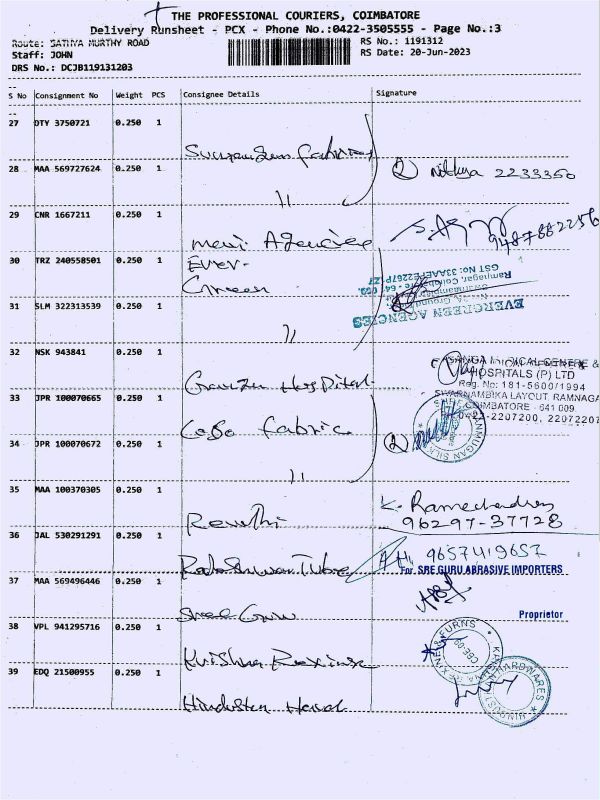 THE PROFESSIONAL COURIERS, COIMBATORE
Delivery Runsheet - PCX - Phone No.:0422-3505555 - Page No.:3
Route: SATHYA MURTHY ROAD
RS No.: 1191312
Staff: JOHN
RS Date: 20-Jun-2023
DRS No.: DCJB119131203
S No Consignment No Weight PCS Consignee Details Signature
27 DTY 3750721 0.250 1
Fabrics
28 MAA 569727624 0.250 1
2233350
29 CNR 1667211 0.250 1
Agencies
9487882256
30 TRZ 240558501 0.250 1 Ever-
Green
EVERGREEN AGENCIES
31 SLM 322313539 0.250 1
32 NSK 943841 0.250 1
HOSPITALS (P) LTD
Reg. No: 181-5600/1994
SWARNAMBIKA LAYOUT, RAMNAGA
COIMBATORE - 641 009.
0422-2207200, 22072207
Hospital
33 JPR 100070665 0.250 1
Fabric
34 JPR 100070672 0.250 1
35 MAA 100370305 0.250 1
K. Ramachandran
96297-37728
Revathi
36 JAL 530291291 0.250 1
9657419657
Tube
For SREE GURU ABRASIVE IMPORTERS
37 MAA 569496446 0.250 1
Sree Guru
Proprietor
38 VPL 941295716 0.250 1
Krishna
39 EDQ 21500955 0.250 1
Hindustan